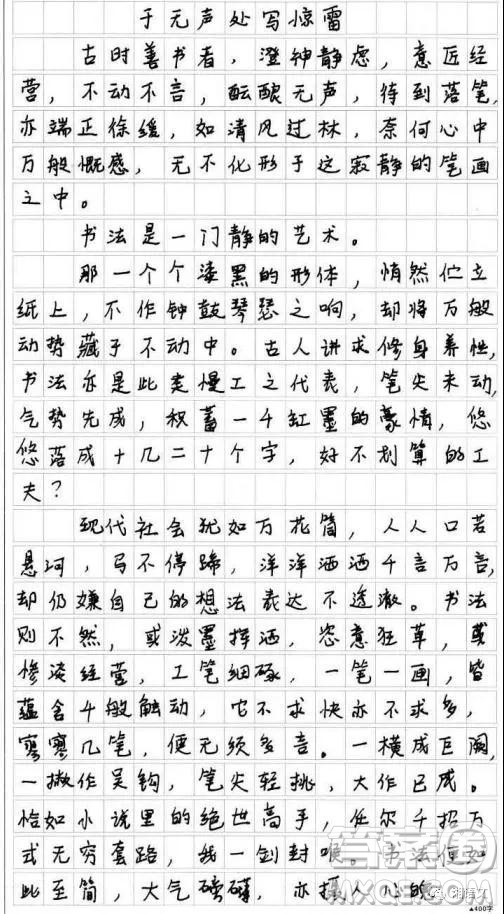 于无声处写惊雷
古时善书者，澄神静虑，意匠经
营，不动不言，酝酿无声，待到落笔，
亦端正徐缓，如清风过林，奈何心中
万般慨感，无不化形于这寂静的笔画
之中。
书法是一门静的艺术。
那一个个漆黑的形体，悄然伫立
纸上，不作钟鼓琴瑟之响，却将万般
动势藏于不动中。古人讲求修身养性，
书法亦是此类慢工之代表，笔尖未动，
气势先成，积蓄一千缸墨的豪情，悠
悠落成十几二十个字，好不划算的工
夫？
现代社会犹如万花筒，人人口若
悬河，马不停蹄，洋洋洒洒千言万言，
却仍嫌自己的想法表达不透澈。书法
则不然，或泼墨挥洒，恣意狂草，或
惨淡经营，工笔细琢，一笔一画，皆
蕴含千般触动，它不求快亦不求多，
寥寥几笔，便无须多言。一横成巨阙，
一撇作吴钩，笔尖轻挑，大作已成。
恰如小说里的绝世高手，任尔千招万
式无穷套路，我一剑封喉。书法便如
此至简，大气磅礴，亦摄人心魄
▲400字